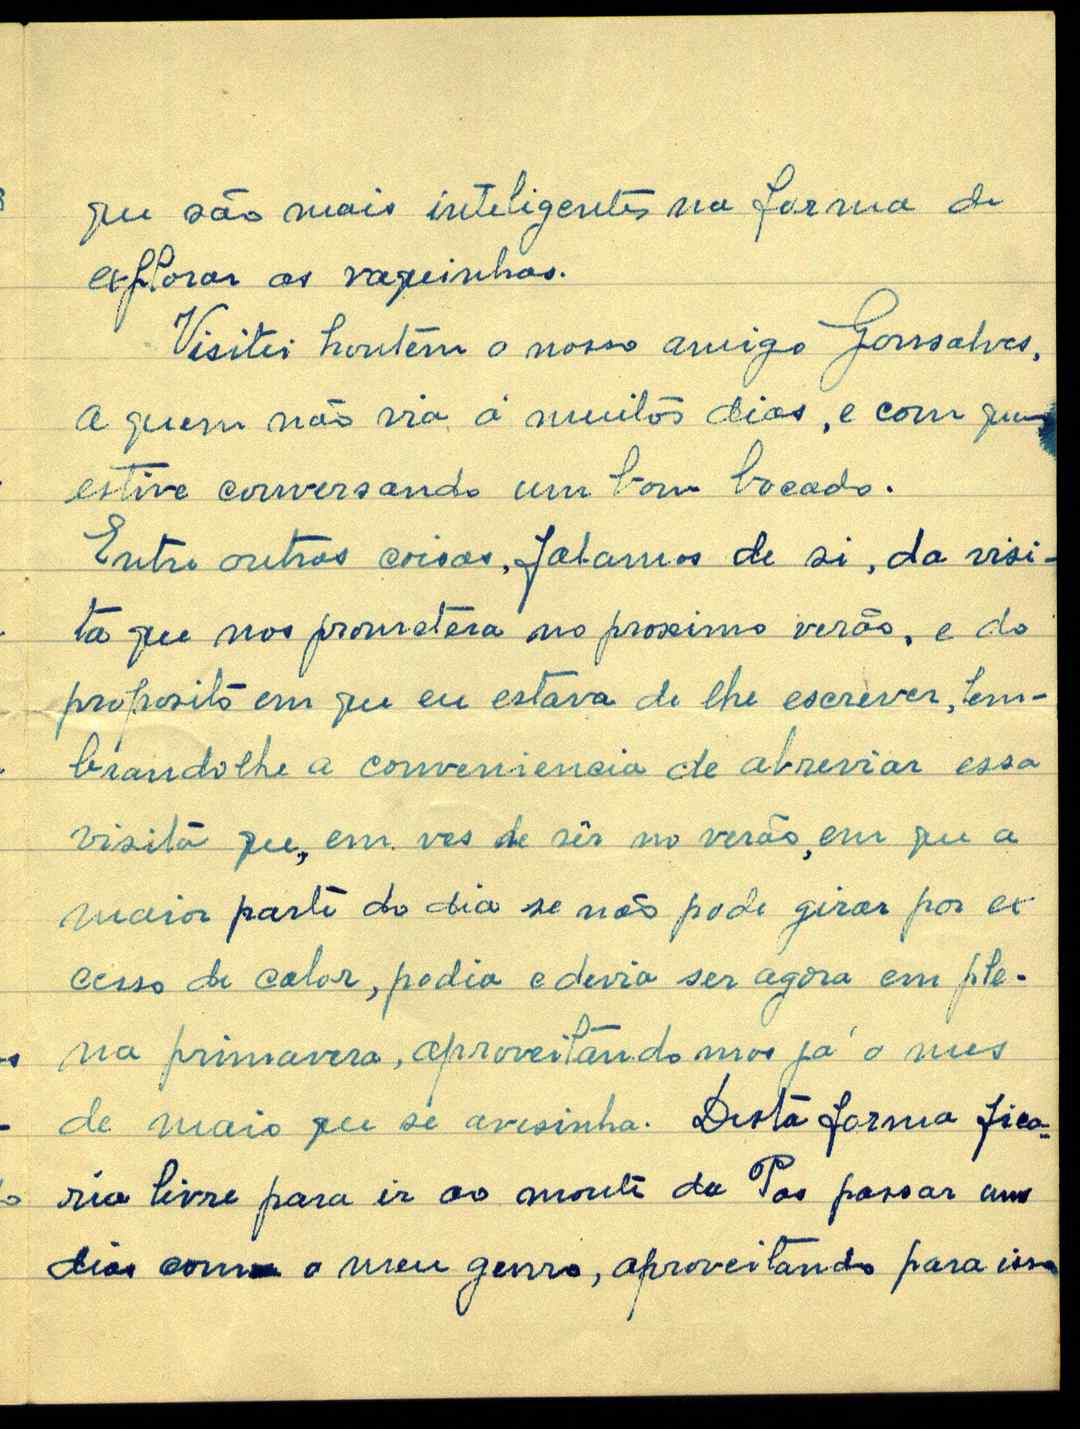 que são mais inteligentes na forma de
explorar as vaquinhas.
Visitei hontem o nosso amigo Gonsalves,
a quem não via á muitos dias, e com quem
estive conversando um bom bocado.
Entre outras coisas, falamos de si, da visi-
ta que nos prometera no proximo verão, e do
proposito em que eu estava de lhe escrever, lem-
brandolhe a conveniencia de abreviar essa
visita que, em ves de sêr no verão, em que a
maior parte do dia se não pode girar por ex
cesso de calor, podia e devia ser agora em ple-
na primavera, aproveitando mos já o mes
de maio que se avisinha. Desta forma fica-
ria livre para ir ao monte da Pas passar uns
dias com o meu genro, aproveitando para isso